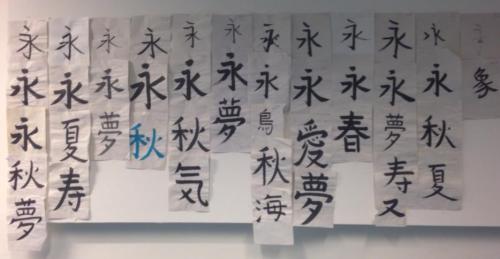 永永永秋夢
永永夏寿
永永夢
永永秋
永永秋気
永永夢
永永鳥秋海
永永愛夢
永永春
永永夢寿又
永永秋夏
永象